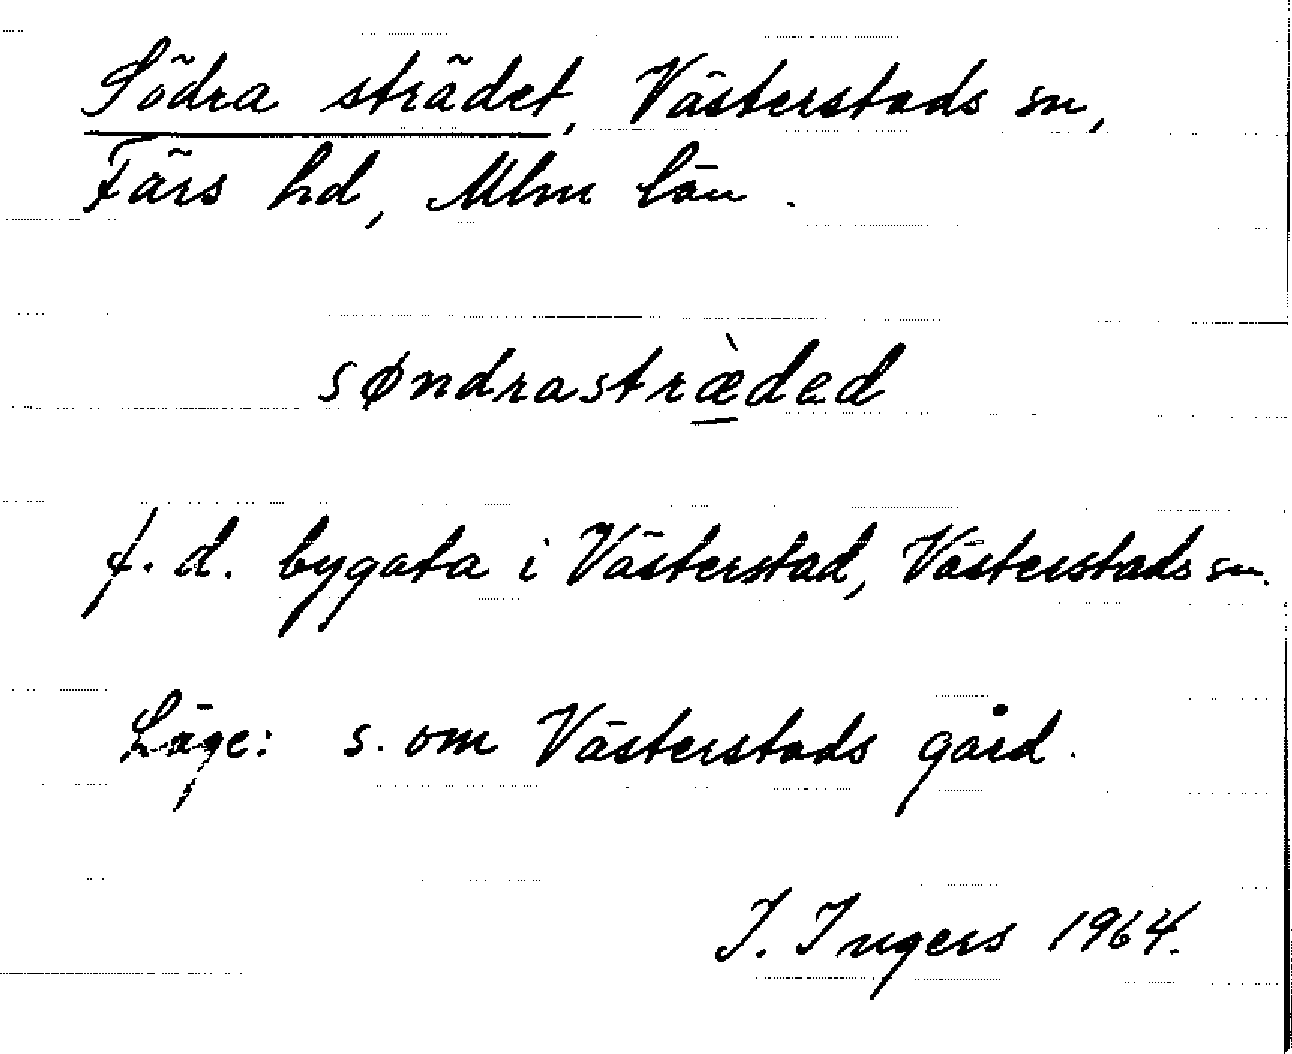 Södra strädet, Västerstads sn,
Färs hd, Mlm län.
søndrastræ̀ded
f.d. bygata i Västerstad, Västerstads sn.
Läge: s. om Västerstads gård.
I. Ingers 1964.